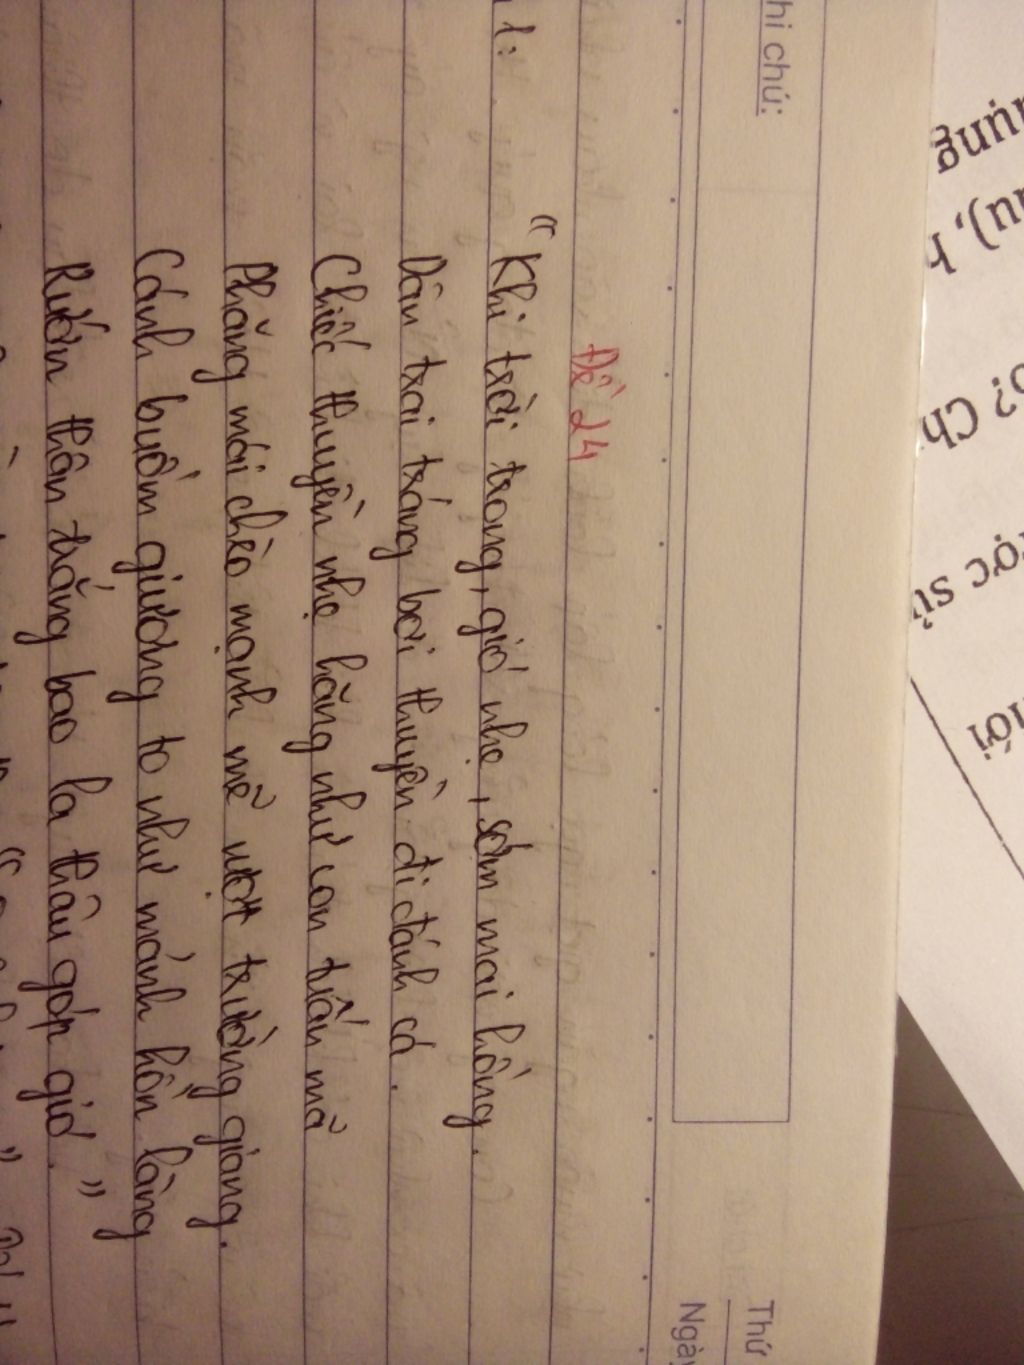 hi chú:
Thứ
Ngày
Đề 24
1:
"Khi trời trong, gió nhẹ, sớm mai hồng.
Dân trai tráng bơi thuyền đi đánh cá.
Chiếc thuyền nhẹ hăng như con tuấn mã
Phăng mái chèo mạnh mẽ vượt trường giang.
Cánh buồm giương to như mảnh hồn làng
Rướn thân trắng bao la thâu góp gió."